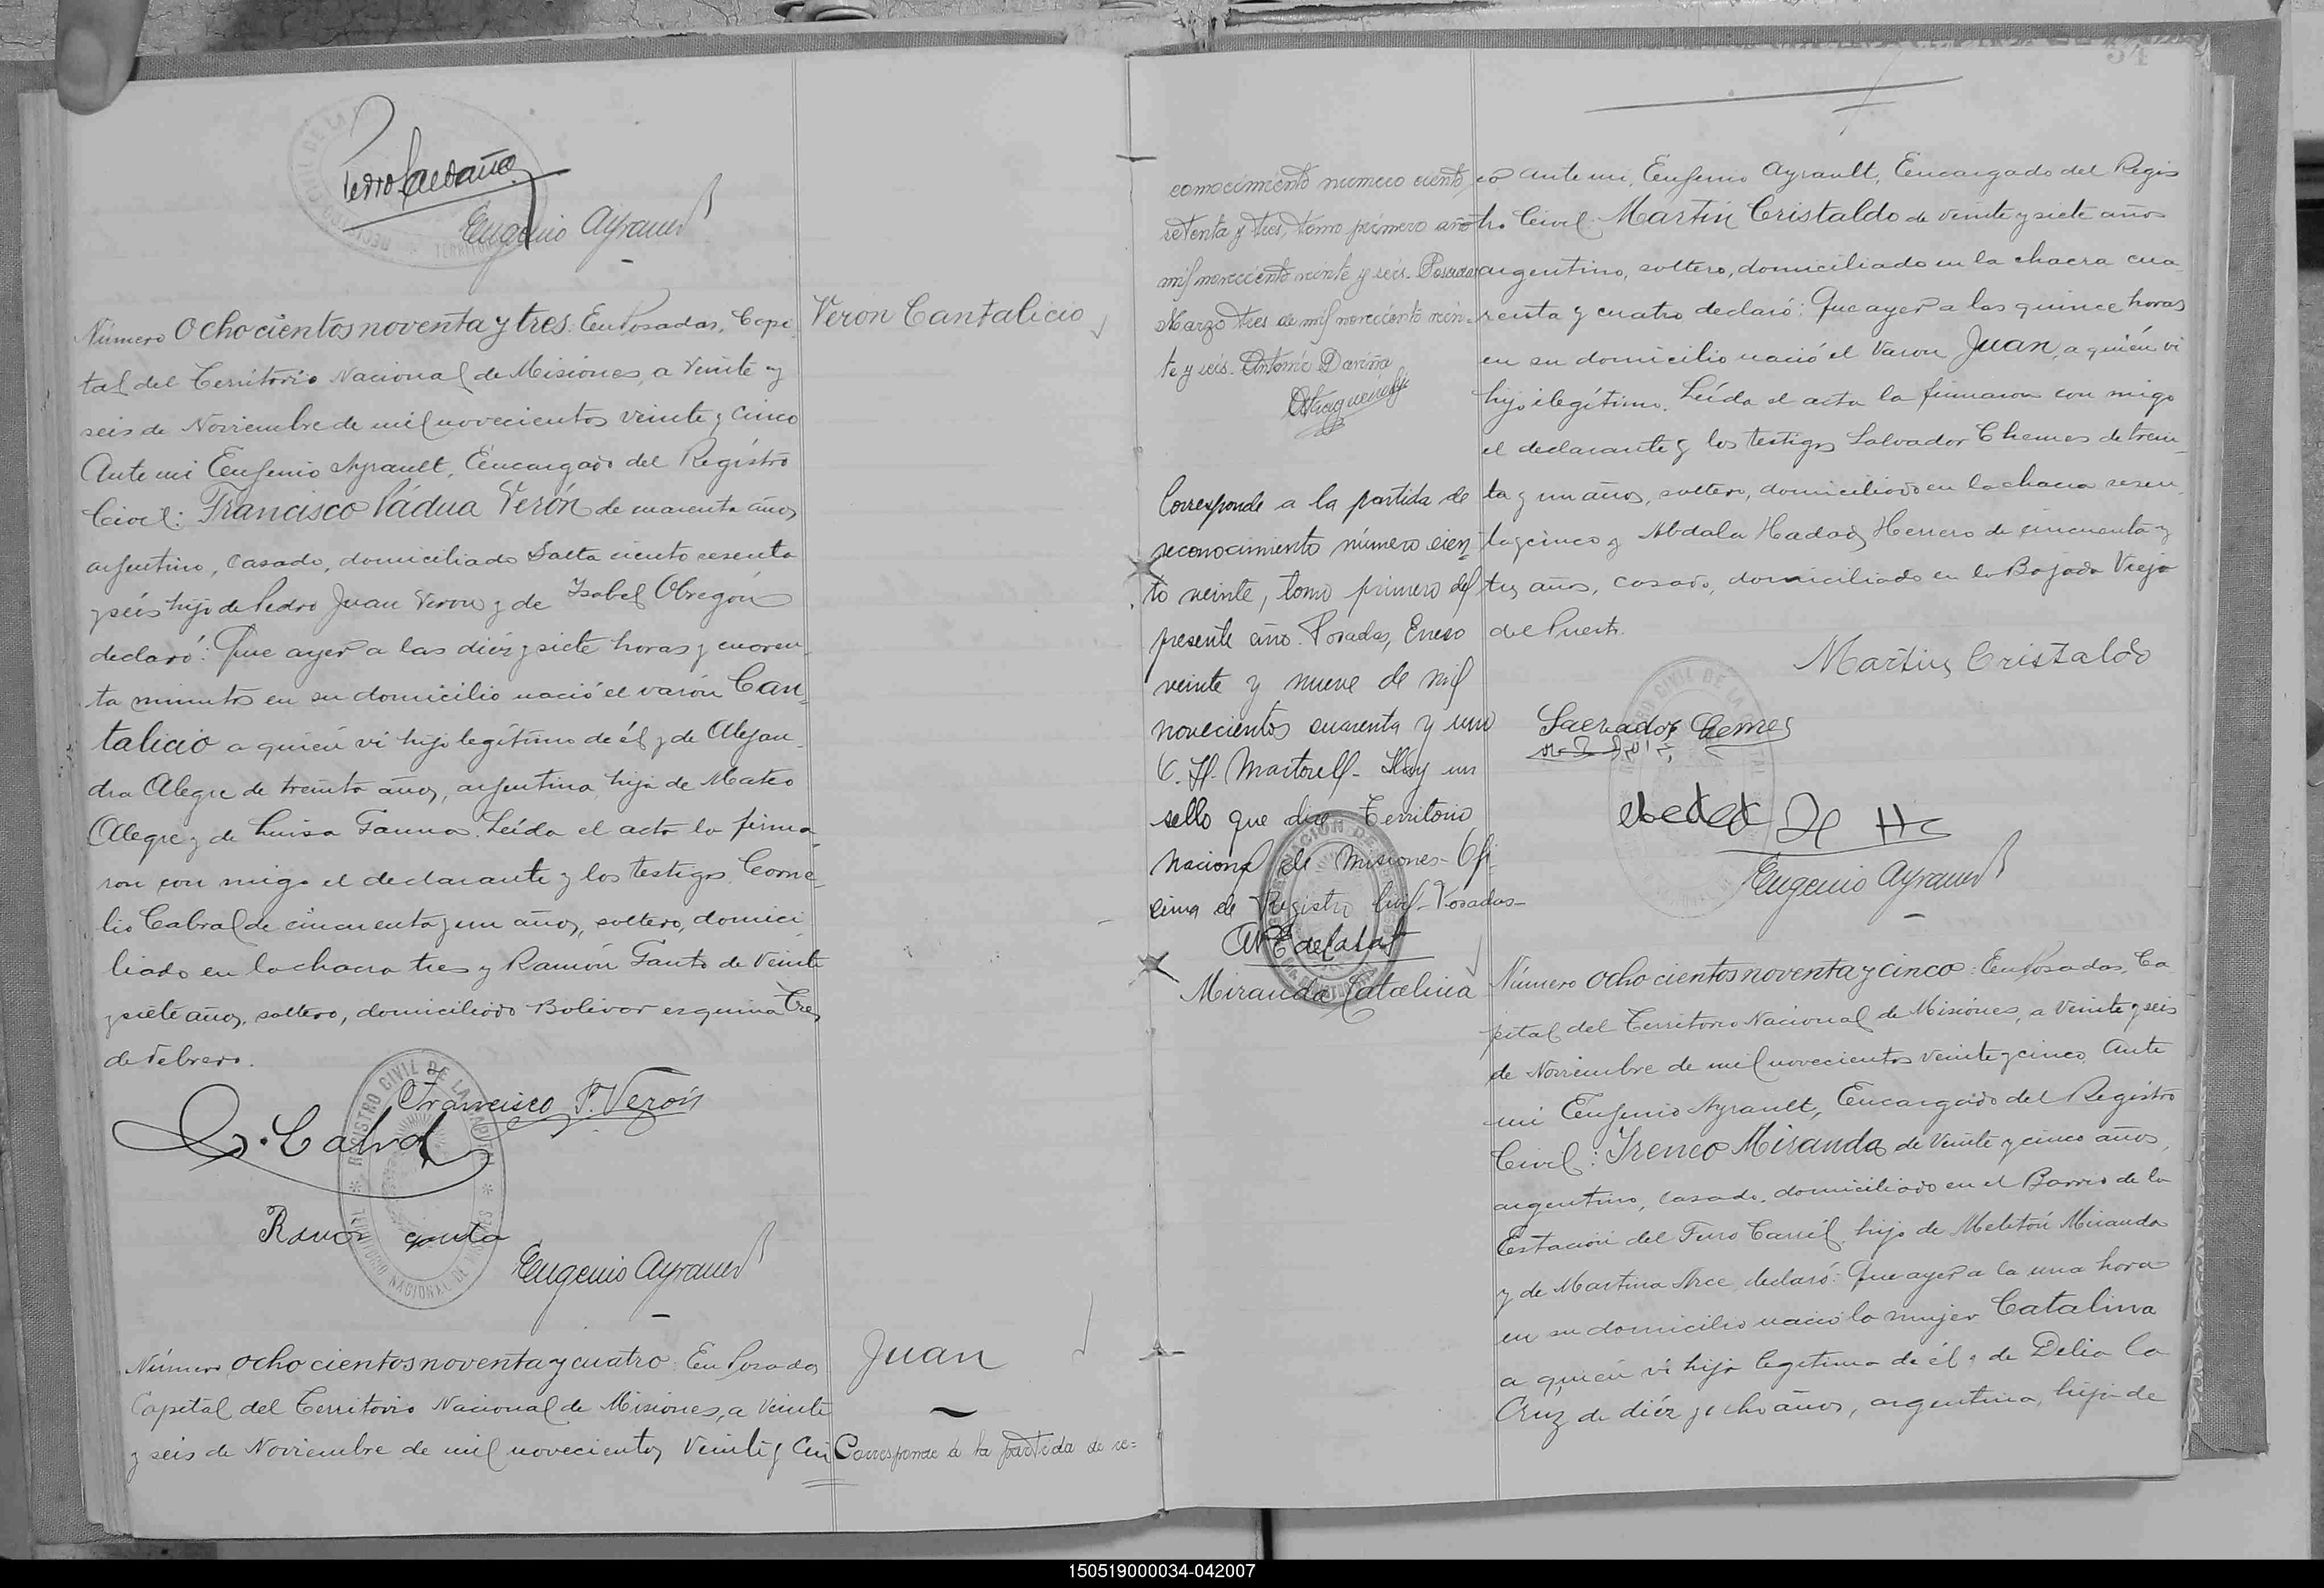 Pedro Caldaña
Eugenio Ayrault
Número Ochocientos noventa y tres: En Posadas, Capi
tal del Território Nacional de Misiones, a Veinte y
seis de Noviembre de mil novecientos veinte y cinco
Ante mi Eugenio Ayrault, Encargado del Registro
Civil: Francisco Pádua Verón de cuarenta años
argentino, casado, domiciliado Salta ciento sesenta
y seis hijo de Pedro Juan Veron y de Isabel Obregón
declaró: Que ayer a las diéz y siete horas y cuaren
ta minutos en su domicilio nació el varón Can-
talicio a quién vi hijo legítimo de él y de Alejan
dra Alegre de treinta años, argentina, hija de Mateo
Alegre y de Luisa Fauna. Leída el acta la firma
ron con migo el declarante y los testigos Corne-
lio Cabral de cincuenta y un años, soltero, domici
liado en la chacra tres y Ramón Gauto de Veinte
y siete años, soltero, domiciliado Bolivar esquina Tres
de Febrero.
Francisco P. Verón
C. Cabral
Ramón gauto
Eugenio Ayrault
REGISTRO CIVIL DE LA CAPITAL
TERRITORIO NACIONAL DE MISIONES
Número ochocientos noventa y cuatro: En Posadas
Capital del Território Nacional de Misiones, a Veinte
y seis de Noviembre de mil novecientos Veinte y Cin
Veron Cantalicio
Juan
Corresponde á la partida de re=
54
conocimiento número ciento
setenta y tres, tomo primero año
mil novecientos veinte y seis. Posadas
Marzo tres de mil novecientos vein-
te y seis. Antonio Dariña
Corresponde a la partida de
reconocimiento número cien-
to veinte, tomo primero del
presente año. Posadas, Enero
veinte y nueve de mil
novecientos cuarenta y uno
C. H. Martorell- Hay un
sello que dice Territorio
Nacional de Misiones- Ofi
cina de Registro Civil- Posadas-
Miranda Catalina
co ante mi, Eugenio Ayrault, Encargado del Regis
tro Civil: Martín Cristaldo de veinte y siete años
argentino, soltero, domiciliado en la chacra cua
renta y cuatro declaró: Que ayer a las quince horas
en su domicilio nació el Varon Juan, a quién vi
hijo ilegítimo. Leída el acta la firmaron con migo
el declarante y los testigos Salvador Chemes de trein-
ta y un años, soltero, domiciliado en la chacra sesen
ta y cinco y Abdala Hadad Herrero de cincuenta y
tres años, casado, domiciliado en la Bajada Vieja
del Puerto.
Martin Cristaldo
Salvador Chemes
Eugenio Ayrault
Número Ochocientos noventa y cinco: En Posadas, Ca
pital del Territorio Nacional de Misiónes, a Veinte y seis
de Noviembre de mil novecientos veinte y cinco Ante
mi Eugenio Ayrault, Encargado del Registro
Civil: Ireneo Miranda de veinte y cinco años,
argentino, casado, domiciliado en el Barrio de la
Estación del Ferro Carril, hijo de Melitón Miranda
y de Martina Arce, declaró: Que ayer a la una hora
en su domicilio nació la mujer Catalina
a quién vi hija legítima de él y de Delia la
Cruz de diéz y ocho años, argentina, hija de
150519000034-042007